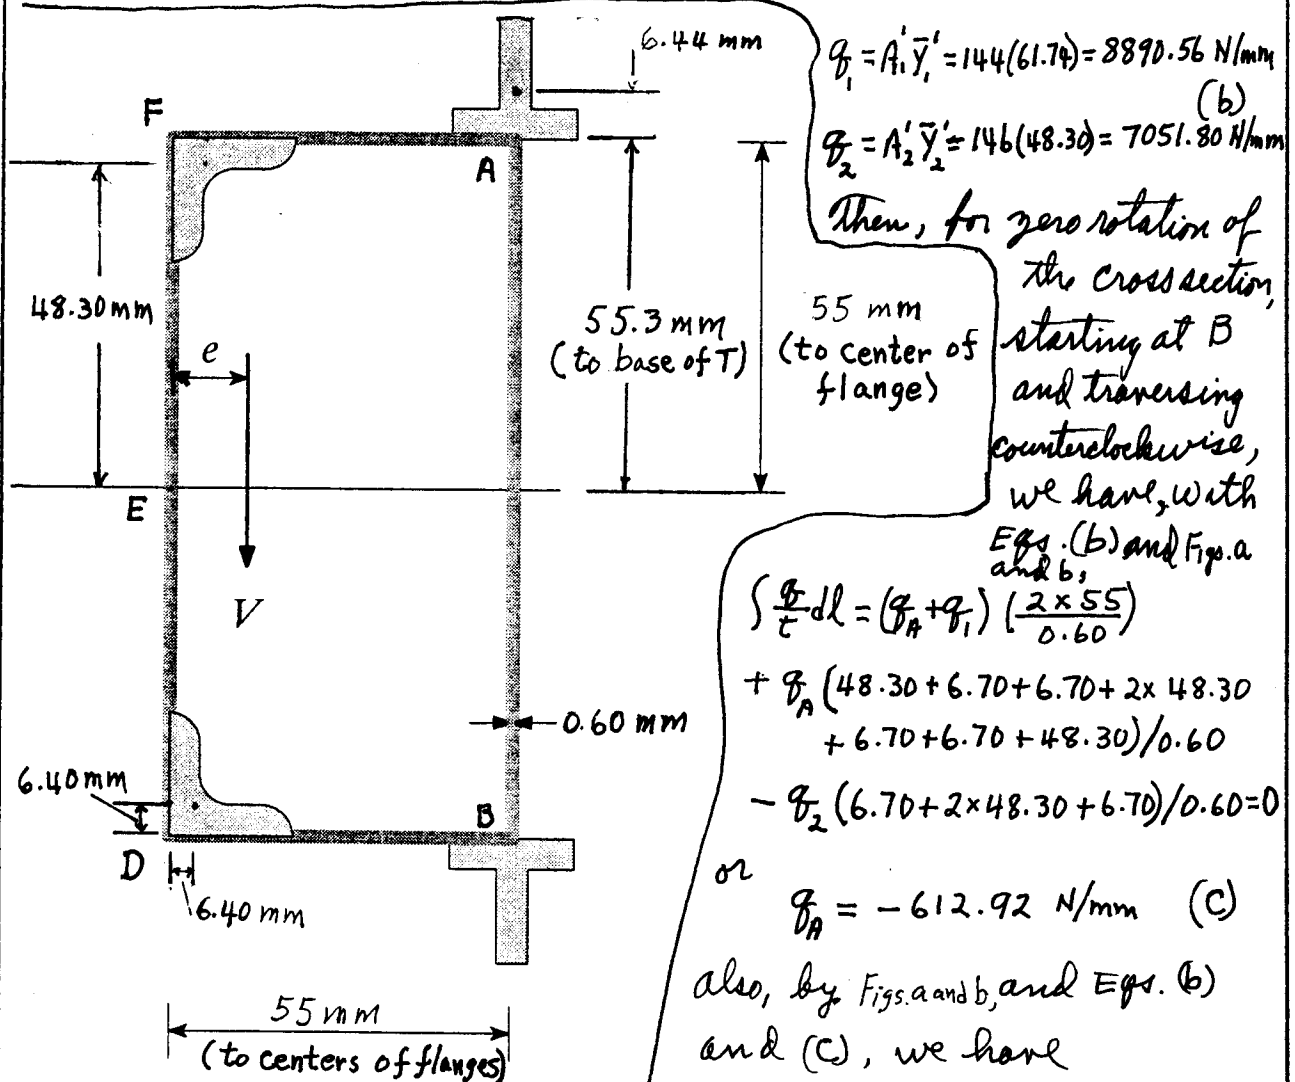 6.44 mm
F
A
48.30 mm
e
55.3 mm
(to base of T)
55 mm
(to center of
flange)
E
V
0.60 mm
6.40 mm
B
D
6.40 mm
55 mm
(to centers of flanges)
q₁ = A₁' ȳ₁' = 144(61.74) = 8890.56 N/mm
(b)
q₂ = A₂' ȳ₂' = 146(48.30) = 7051.80 N/mm
Then, for zero rotation of
the cross section,
starting at B
and traversing
counterclockwise,
we have, with
Eqs. (b) and Figs. a
and b,
∫ q/t dl = (q_A + q₁) (2 × 55 / 0.60)
+ q_A (48.30 + 6.70 + 6.70 + 2 × 48.30
+ 6.70 + 6.70 + 48.30)/0.60
− q₂ (6.70 + 2 × 48.30 + 6.70)/0.60 = 0
or
q_A = − 612.92 N/mm (C)
also, by Figs. a and b, and Eqs. (b)
and (C), we have